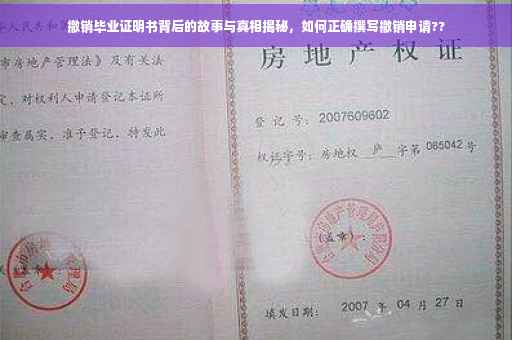 撤销毕业证明书背后的故事与真相揭秘，如何正确撰写撤销申请??
市房地产管理法》及有关法
定，对权利人申请登记本证所
审查属实，准予登记，特发此
房地产权证
登记号：2007609602
权证字号：房地权 庐 字第 085042 号
(盖章)：
填发日期：2007 年 04 月 27 日